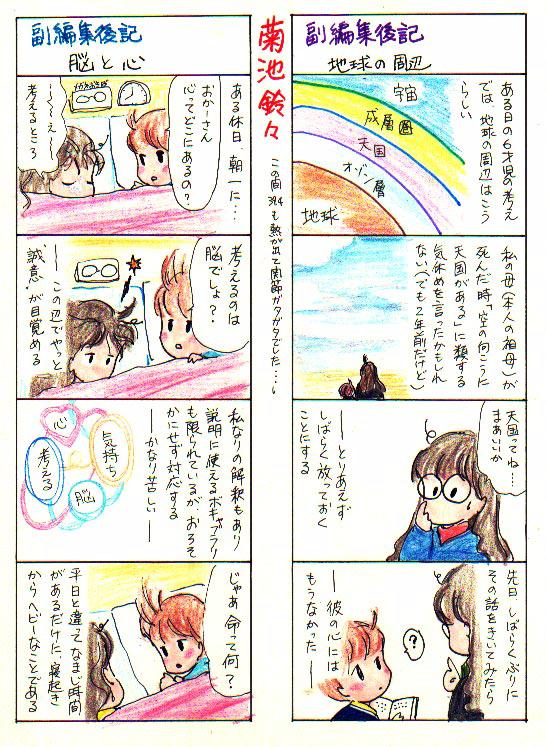 副編集後記
地球の周辺
ある日の6才児の考え
では、地球の周辺はこう
らしい
宇宙
成層圏
天国
オゾン層
地球
私の母(本人の祖母)が
死んだ時「空の向こうに
天国がある」に類する
気休めを言ったかもしれ
ない(でも2年前だけど)
天国ってね…
まあいいか
――とりあえず
しばらく放っておく
ことにする
先日、しばらくぶりに
その話をきいてみたら
?
――彼の心には
もうなかった――
菊池鈴々
この間39.4も熱が出て関節がガタガタでした…
副編集後記
脳と心
ある休日、朝一に…
おかーさん
心ってどこにあるの?
メガネぶそば
〜〜え〜
考えるところ
考えるのは
脳でしょ?
――この辺でやっと
"誠意"が目覚める
私なりの解釈もあり
説明に使えるボキャブラリ
も限られているが、おろそ
かにせず対応する
――かなり苦しい――
心
気持ち
考える
脳
じゃあ命って何?
平日と違ってなまじ時間
があるだけに、寝起き
からヘビーなことである